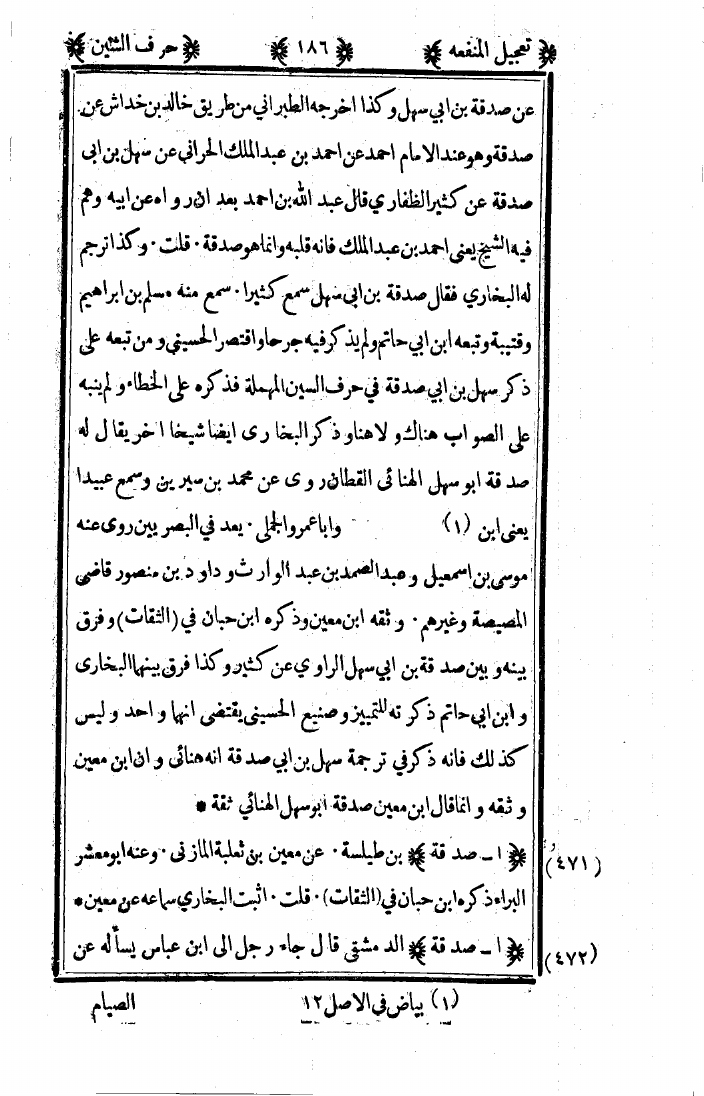 تعجيل المنفعه ﴿ ١٨٦ ﴾ حرف الشين
عن صدقة بن ابي سهل وكذا اخرجه الطبراني من طريق خالد بن خداش عن
صدقة وهو عند الامام احمد عن احمد بن عبد الملك الحراني عن سهل بن ابى
صدقة عن كثير الظفاري قال عبد الله بن احمد بعد ان رواه عن ابيه وهم
فيه الشيخ يعنى احمد بن عبد الملك فانه قلبه وانما هو صدقة ٠ قلت ٠ وكذا ترجم
له البخاري فقال صدقة بن ابي سهل سمع كثيرا ٠ سمع منه مسلم بن ابراهيم
وقتيبة وتبعه ابن ابي حاتم ولم يذكر فيه جرحا واقتصر الحسيني ومن تبعه على
ذكر سهل بن ابي صدقة في حرف السين المهملة فذكره على الخطاء ولم ينبه
على الصواب هناك ولا هنا وذكر البخارى ايضا شيخا اخر يقال له
صدقة ابو سهل الهنائى القطان روى عن محمد بن سيرين وسمع عبيدا
يعنى ابن (١) وابا عمرو الجملي ٠ يعد في البصريين روى عنه
موسى بن اسمعيل وعبد الصمد بن عبد الوارث وداود بن منصور قاضى
المصيصة وغيرهم ٠ وثقه ابن معين وذكره ابن حبان في (الثقات) وفرق
بينه وبين صدقة بن ابي سهل الراوي عن كثير وكذا فرق بينهما البخارى
وابن ابي حاتم ذكرته للتمييز وصنيع الحسيني يقتضى انهما واحد وليس
كذلك فانه ذكر في ترجمة سهل بن ابي صدقة انه هنائى وان ابن معين
وثقه وانما قال ابن معين صدقة ابو سهل الهنائي ثقة *
﴿ ا ـ صدقة ﴾ بن طيلسة ٠ عن معين بن ثعلبة المازنى ٠ وعنه ابو معشر (٤٧١)
البراء ذكره ابن حبان في (الثقات) ٠ قلت ٠ اثبت البخاري سماعه عن معين *
﴿ ا ـ صدقة ﴾ الدمشقى قال جاء رجل الى ابن عباس يسأله عن (٤٧٢)
(١) بياض في الاصل ١٢ الصيام